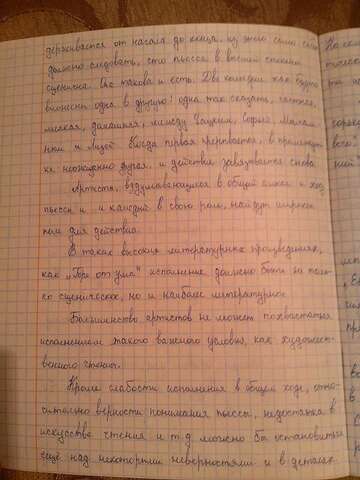 держивается от начала до конца, из этого само собою
должно следовать, что пьеса в высшей степени
сценична. Она такова и есть. Две комедии как будто
вложены одна в другую: одна так сказать, частная,
мелкая, домашняя, между Чацким, Софьей, Молчали-
ным и Лизой. Когда первая прерывается, в промежут-
ке неожиданно другая, и действие завязывается снова
Артисты, вдумывающиеся в общий смысл и ход
пьесы и и каждый в свою роль, найдут широкое
поле для действия.
В таких высоких литературных произведениях,
как „Горе от ума" исполнение должно быть не толь-
ко сценическое, но и наиболее литературное.
Большинство артистов не может похвастаться
исполнением такого важного условия, как художест-
венного чтения.
Кроме слабости исполнения в общем ходе, отно-
сительно верности понимания пьесы, недостатка в
искусстве чтения и т.д можно бы остановиться
ещё над некоторыми неверностями и в деталях